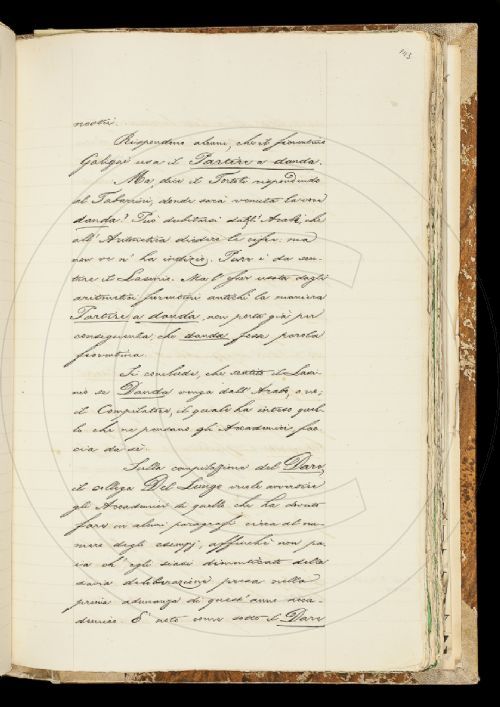 143
nostri.
Rispondono alcuni, che il fiorentino
Galigai usa il Partire a danda.
Ma, dice il Tortoli rispondendo
al Tabarrini, donde sarà venuta la voce
danda? Può dubitarsi dagli Arabi che
all' Aritmetica diedero le cifre; ma
non ve n' ha indizio. Pure è da sen-
tire il Lasinio. Ma l' esser usata dagli
aritmetici fiorentini antichi la maniera
Partire a danda, non porta già per
conseguenza che danda fosse parola
fiorentina.
Si conchiude, che sentito il Lasi-
nio se Danda venga dall' Arabo, o no;
il Compilatore, il quale ha inteso quel-
lo che ne pensano gli Accademici fac-
cia da sè.
Sulla compilazione del Dare,
il collega Del Lungo vuole avvertire
gli Accademici di quello che ha dovuto
fare in alcuni paragrafi circa al nu-
mero degli esempj, affinchè non pa-
ia ch' egli siasi dimenticato della
savia deliberazione presa nella
prima adunanza di quest' anno acca-
demico. E noto come sotto il Dare